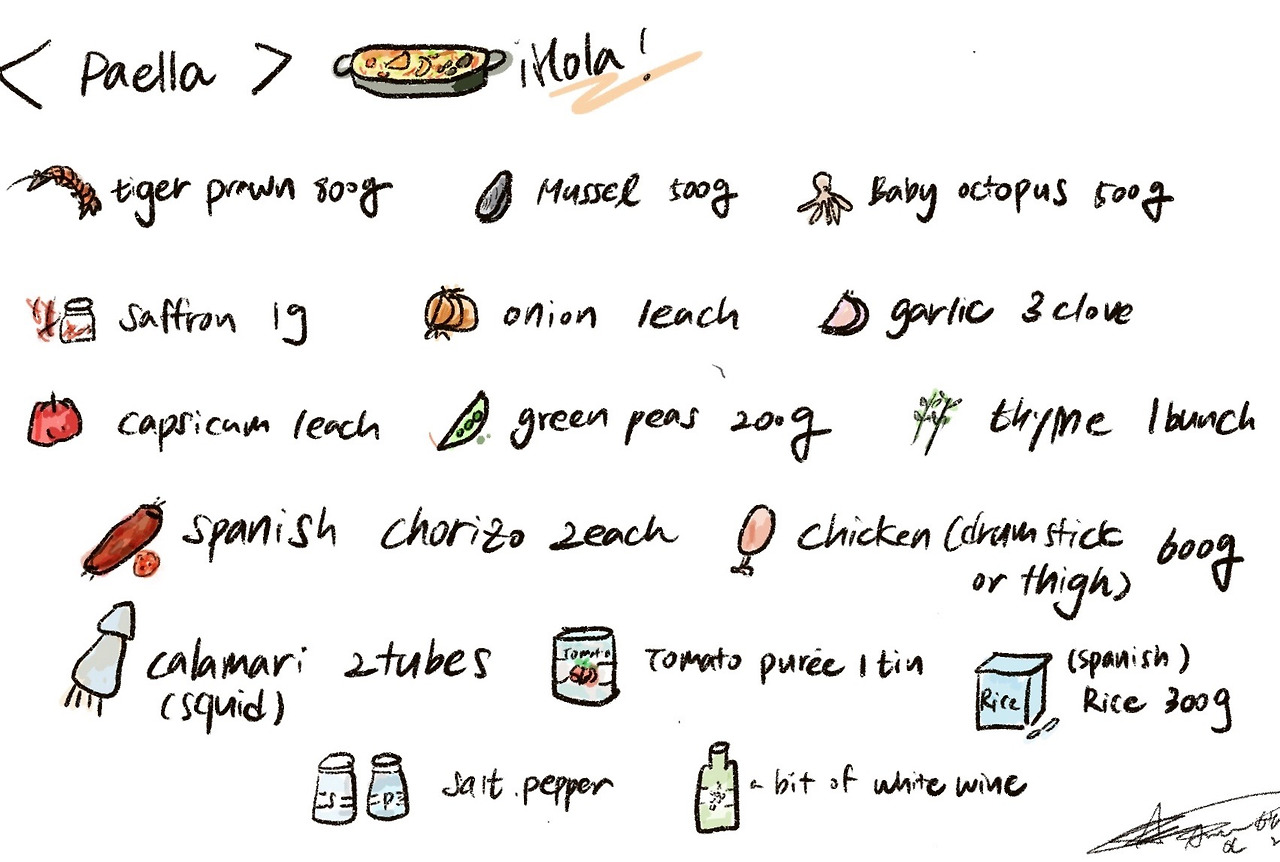 < Paella > ¡Hola!
tiger prawn 800g Mussel 500g Baby octopus 500g
saffron 1g onion 1each garlic 3 clove
capsicum 1each green peas 200g thyme 1bunch
spanish chorizo 2each chicken (drumstick or thigh) 600g
calamari (squid) 2tubes
Tomato
Tomato purée 1 tin
Rice
(spanish)
Rice 300g
S P salt. pepper a bit of white wine